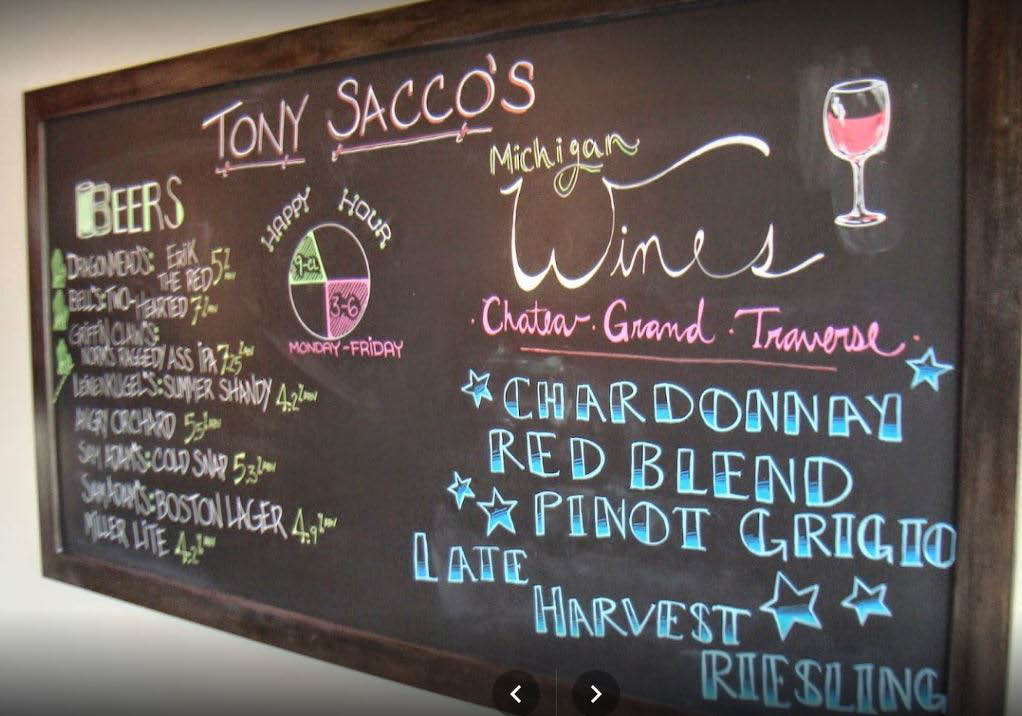 TONY SACCO'S
BEERS
DRAGONMEAD'S: ERIK
THE RED 5%
BELL'S: TWO-HEARTED 7%
GRIFFIN CLAW'S:
NORM'S RAGGEDY ASS IPA 7.25%
LEINENKUGEL'S: SUMMER SHANDY 4.2%
ANGRY ORCHARD 5%
SAM ADAM'S: COLD SNAP 5.3%
SAM ADAM'S: BOSTON LAGER 4.9%
MILLER LITE 4.2%
HAPPY HOUR
9-CL
3-6
MONDAY-FRIDAY
Michigan
Wines
·Chateau·Grand·Traverse·
CHARDONNAY
RED BLEND
PINOT GRIGIO
LATE
HARVEST
RIESLING